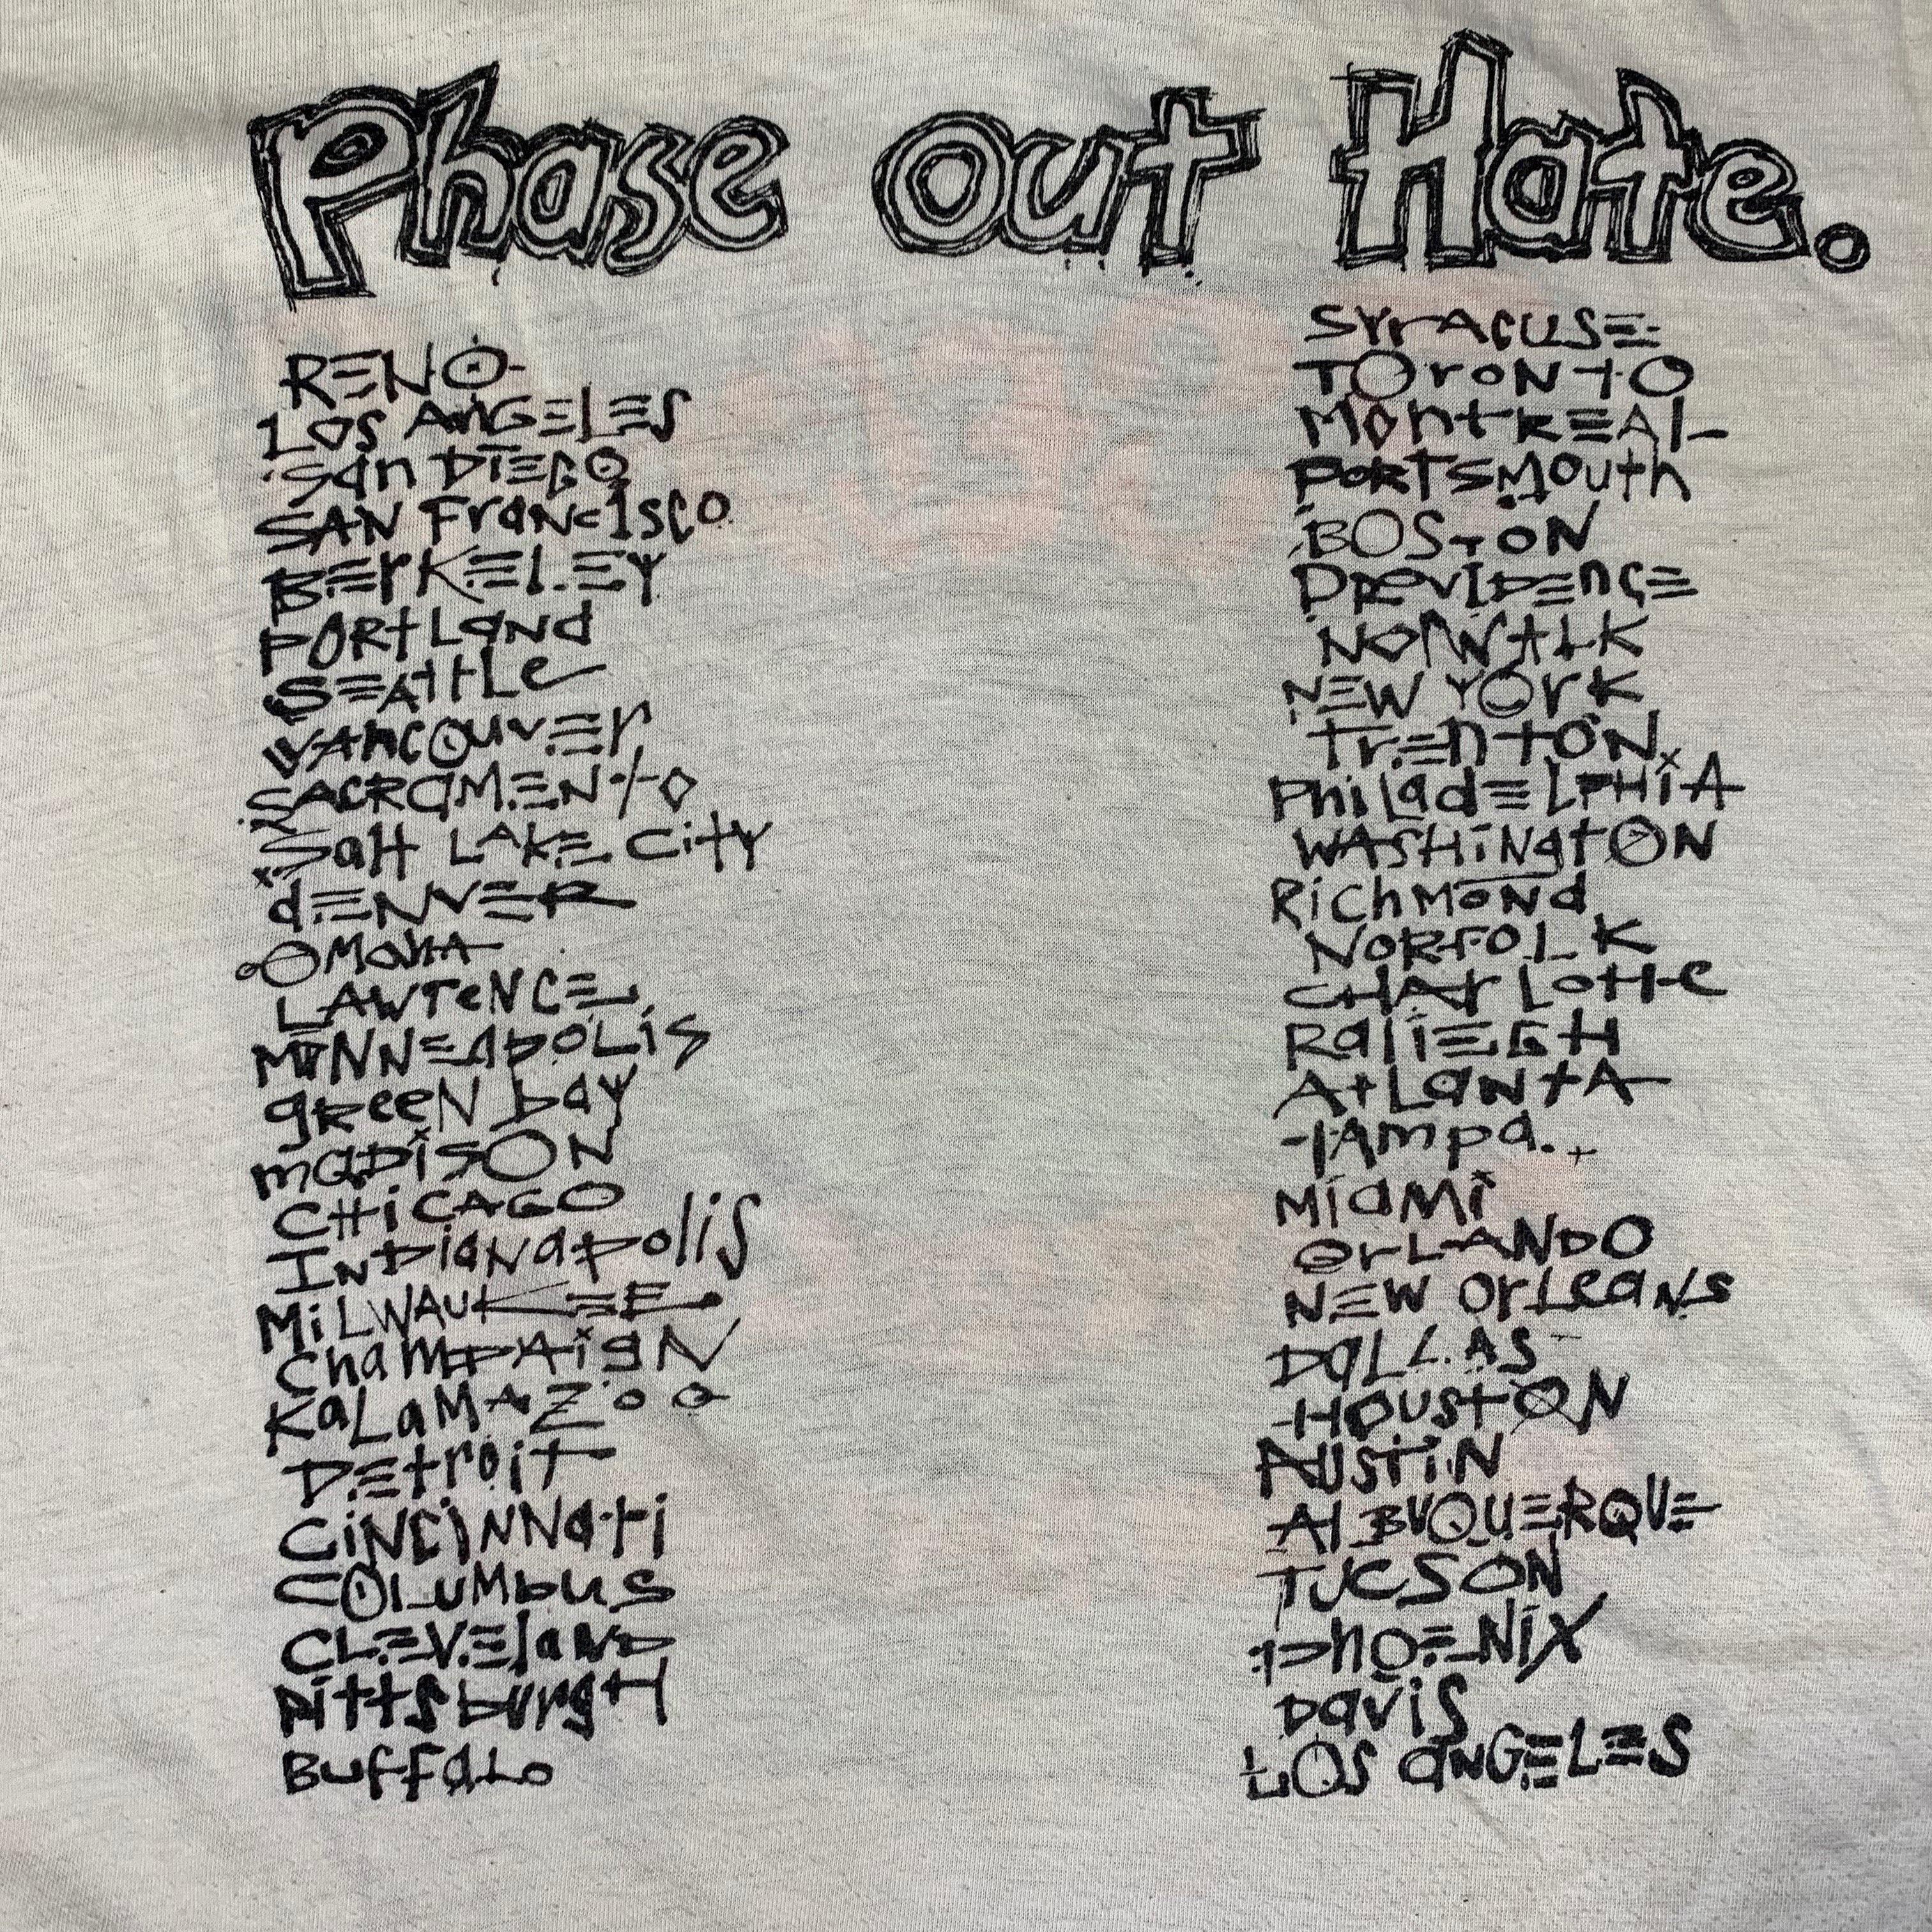 Phase out Hate.
RENO
LOS ANGELES
San DIEGO
SAN Francisco
BErKELEY
PORtLand
SEAttLe
VANcouvEr
SACRaMENtO
Salt LAKE City
dENVER
OMaHA
LAWreNCE
MiNNEApOLiS
gReeN bay
maDiSON
CHiCAGO
InDianapoliS
MiLWAUKEE
ChamPAigN
KaLaMAZoo
DEtroiT
CiNCiNNati
COLUMbuS
CLEVElaND
Pittsburgh
BuffaLo
SyrACUSE
TOroNtO
MontREAL
PORTSMOuth
BOSTON
PRovIDEnCE
NOrWALK
NEW YOrK
TrEntON
PhiLadELPHiA
WASHiNgtON
RiChMoNd
NORFOLK
CHArLotte
RaliEGH
AtLaNtA
TAmpa.
MiaMi
OrLANDO
NEW OrLeaNs
DaLLAS
HOustON
AUSTiN
ALBUQUERQUE
TUCSON
PhOENiX
DaviS
LOS aNGELES